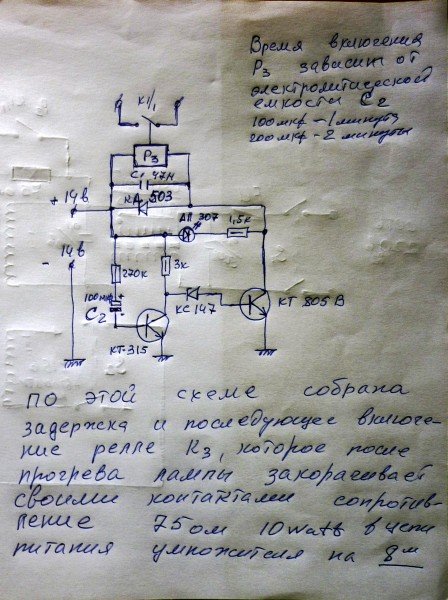 Время включения
Р₃ зависит от
электролитической
емкости С₂
100мкф - 1 минута
200мкф - 2 минуты
К1/1
Р₃
С₁ 47н
КД 503
+ 14в
АЛ 307
1,5к
14в
-
270к
3к
100мкф +
С₂ -
КС 147
КТ 805 В
КТ-315
по этой схеме собрана
задержка и последующее включе-
ние релле К₃, которое после
прогрева лампы закорачивает
своими контактами сопротив-
ление 75ом 10watt в цепи
питания умножителя на 8м